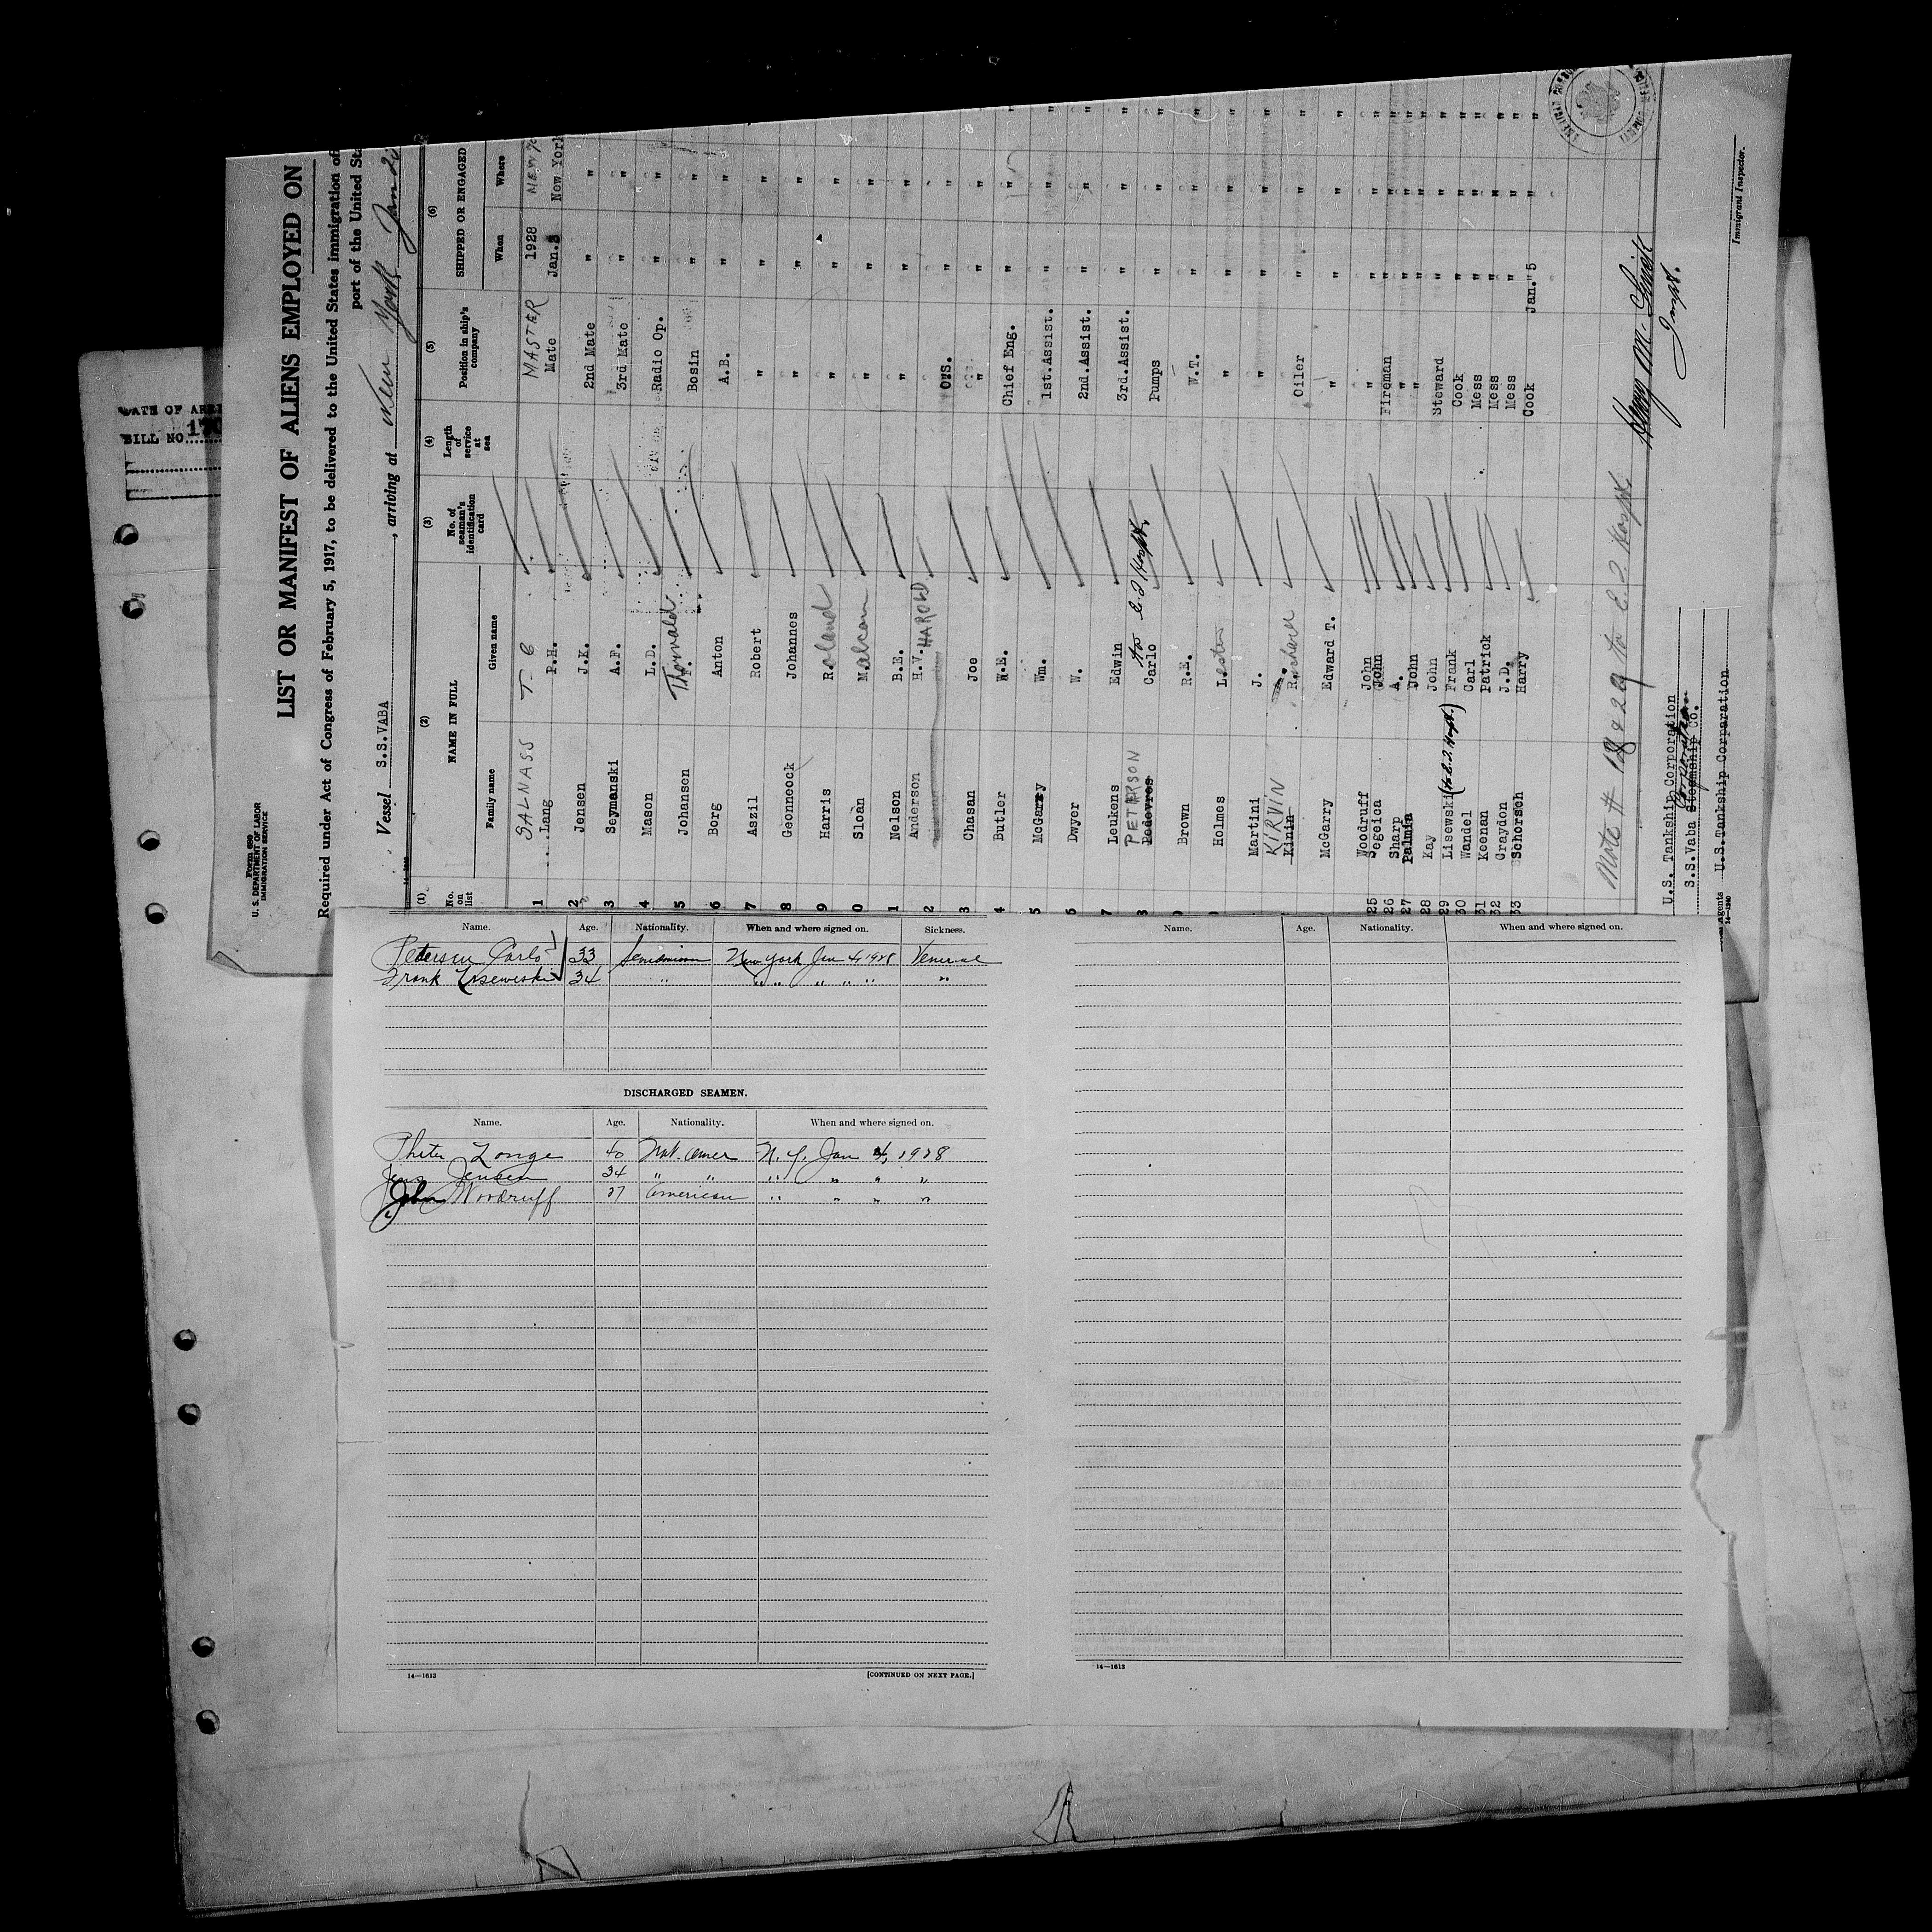 DATE OF
BILL NO. 170
Form 680
U. S. DEPARTMENT OF LABOR
IMMIGRATION SERVICE
LIST OR MANIFEST OF ALIENS EMPLOYED ON
Required under Act of Congress of February 5, 1917, to be delivered to the United States immigration of
port of the United Sta
Vessel S.S.VABA, arriving at New York
(1) (2) (3) (4) (5) (6)
No. on list NAME IN FULL No. of seaman's identification card Length of service at sea Position in ship's company SHIPPED OR ENGAGED
Family name Given name When Where
SALNASS MASTER 1928
1 Lang P.H. Mate Jan.3 New York
2 Jensen J.K. 2nd Mate " "
3 Seymanski A.F. 3rd Mate " "
4 Mason L.D. Radio Op. " "
5 Johansen Thorwald Bosin " "
6 Borg Anton A.B. " "
7 Aszil Robert " " "
8 Geonneock Johannes " " "
9 Harris Roland " " "
0 Sloan Malcom " " "
1 Nelson B.E. " " "
2 Anderson H.V. HAROLD O.S. " "
3 Chasan Joe " " "
4 Butler W.E. Chief Eng. " "
5 McGarry Wm. 1st.Assist. " "
6 Dwyer W. 2nd.Assist. " "
7 Leukens Edwin 3rd.Assist. " "
8 PETERSON Carlo to E.I Hospt. Pumps " "
Brown R.E. W.T. " "
Holmes Lester " " "
Martini J. " " "
KIRVIN Kinin Richard Oiler " "
McGarry Edward T. " " "
25 Woodruff John " " "
Segeica John Fireman " "
26 Sharp A. " " "
27 Palmia John " " "
28 Kay John
29 Lisewski (to E.I. Hospt.) Frank Steward " "
30 Wandel Carl Cook " "
31 Keenan Patrick Mess " "
32 Graydon J.D. Mess " "
33 Schorsch Harry Mess " "
Cook Jan. 5 "
Note # 18 & 29 to E.I. Hospt.
Inspt.
U.S. Tankship Corporation
S.S.Vaba Steamship Co.
Agents U.S.Tankship Corparation
14—1240
Immigrant Inspector.
Name. Age. Nationality. When and where signed on. Sickness.
Petersen Carlo 33 New York Jan 4 1928 Venereal
Frank 34 " " " " " " "
DISCHARGED SEAMEN.
Name. Age. Nationality. When and where signed on.
40 Nat. Amer N. Y. Jan 4, 1928
Jens Jensen 34 " " " " " "
John Woodruff 27 American " " " "
14—1613
[CONTINUED ON NEXT PAGE.]
Name. Age. Nationality. When and where signed on.
14—1613